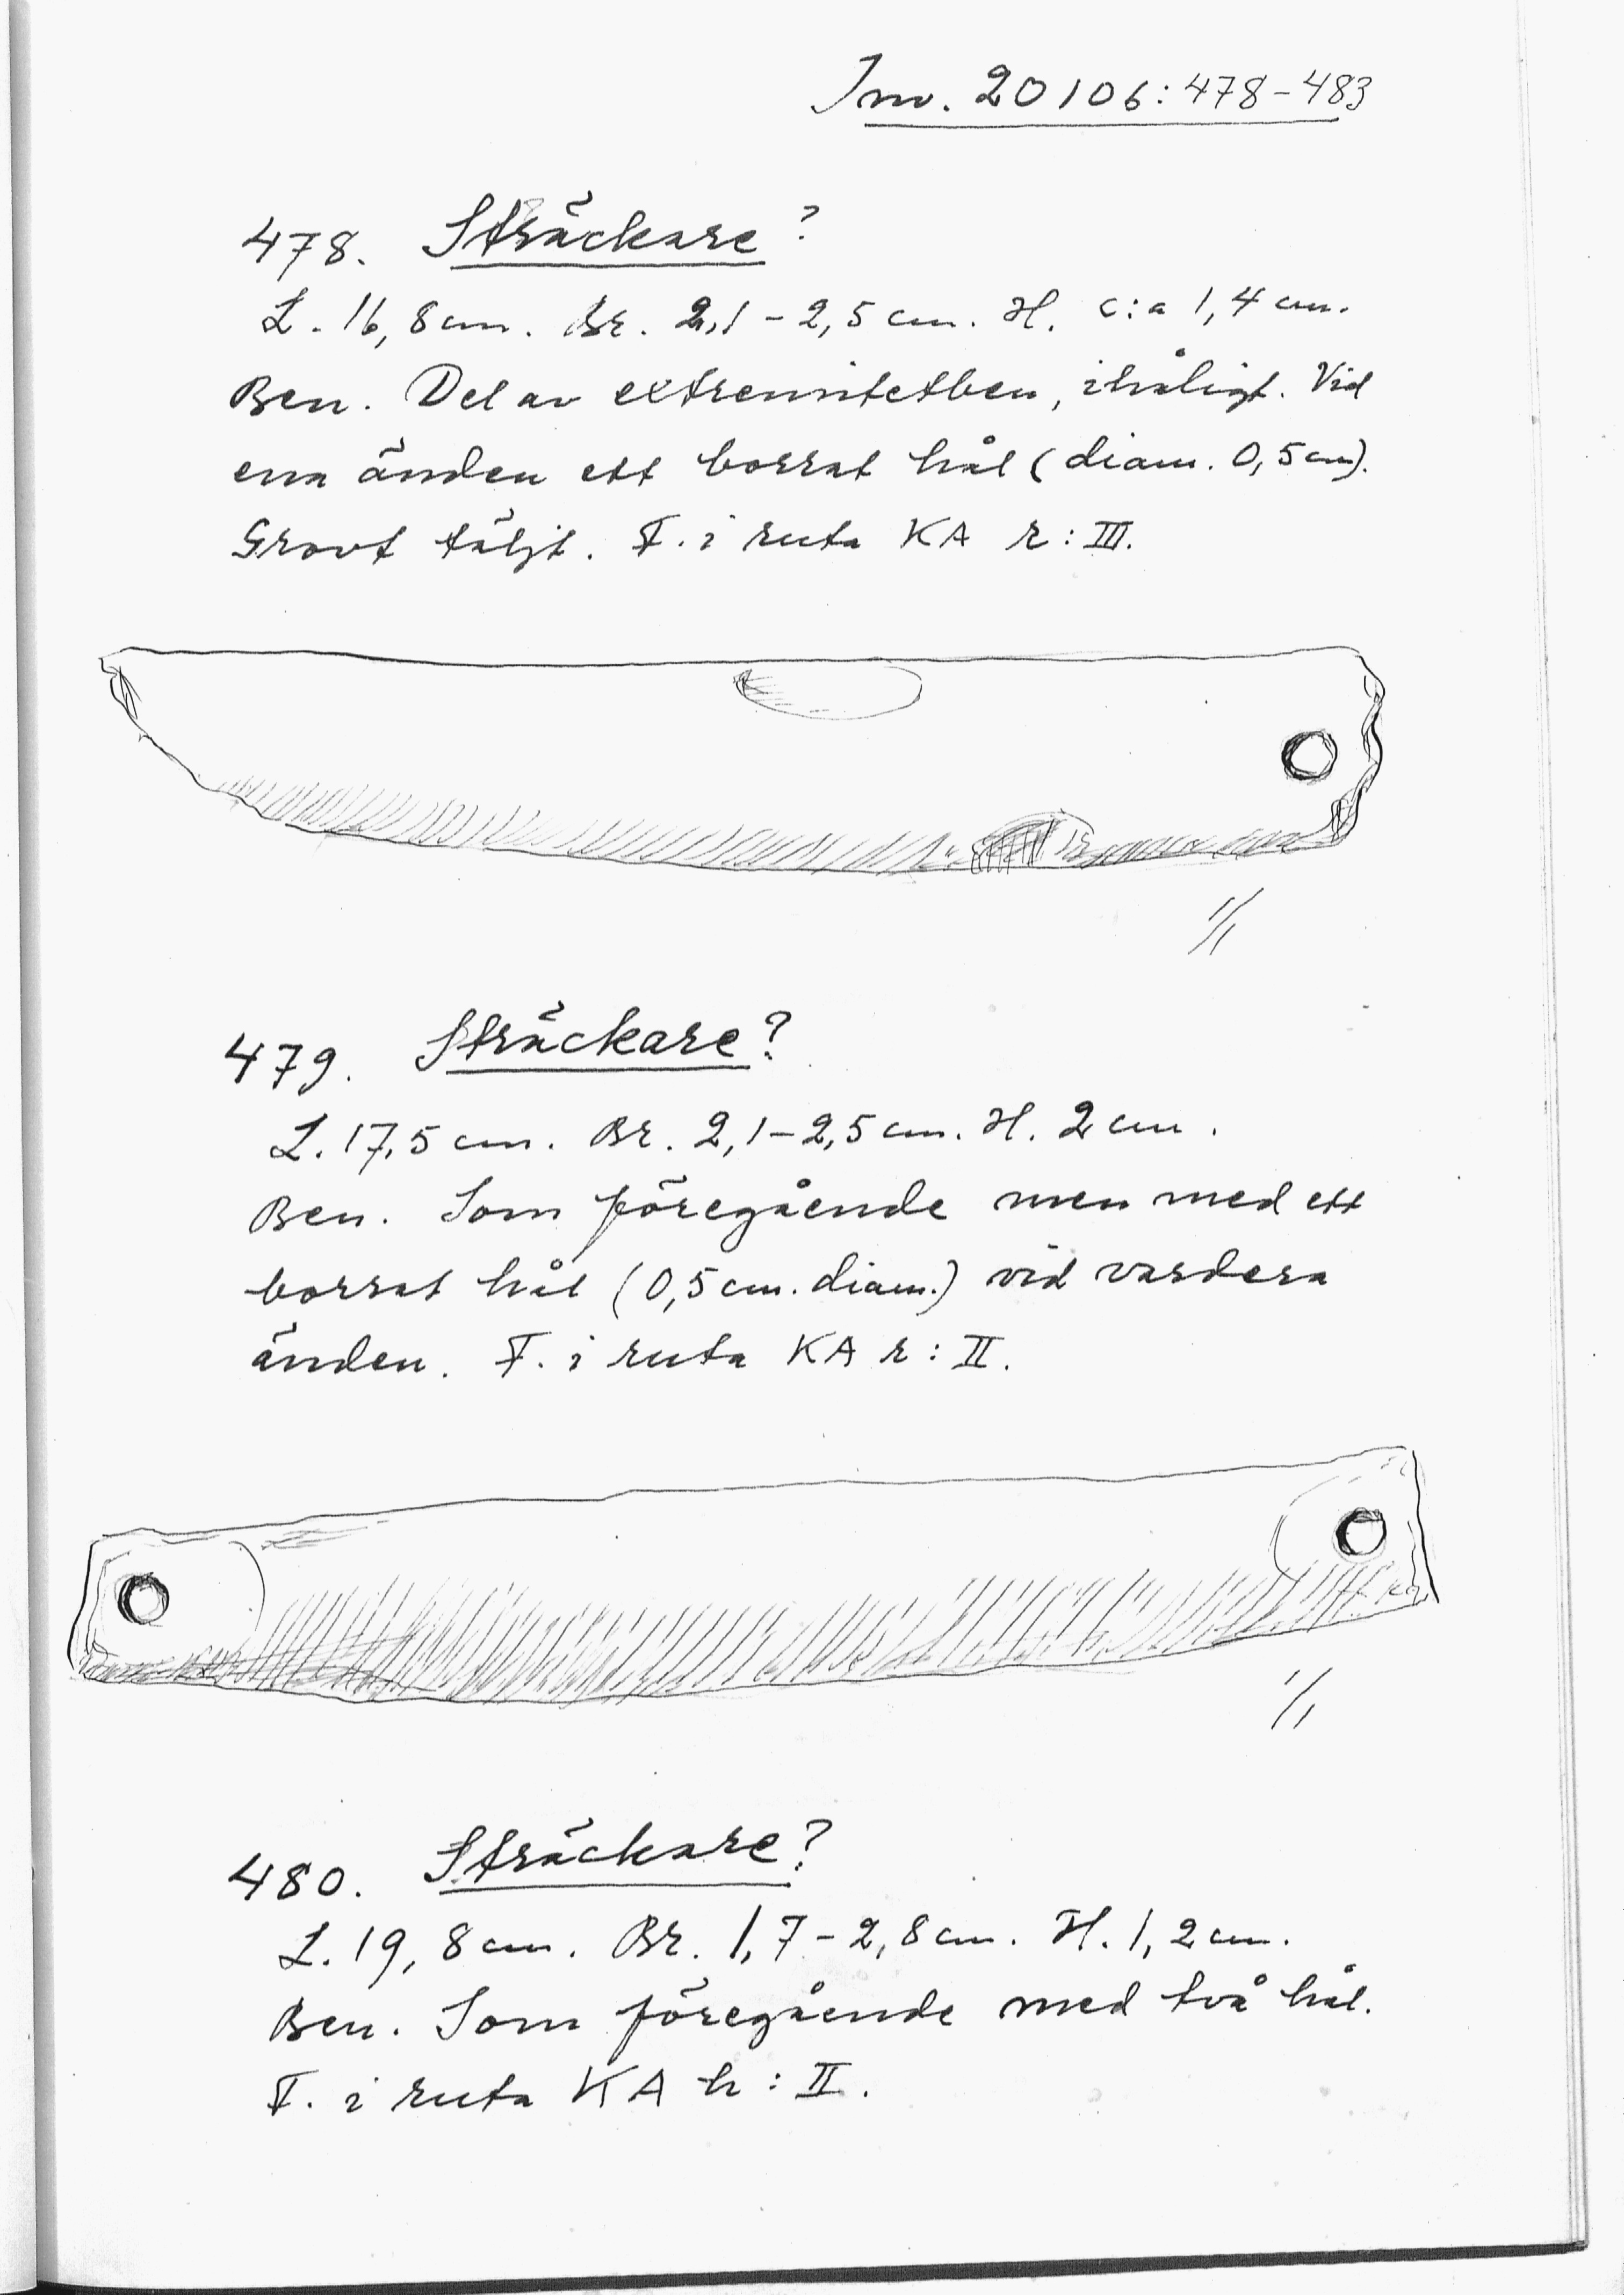 Inv. 20106:478-483
478. Sträckare?
L. 16,8 cm. Br. 2,1-2,5 cm. H. c:a 1,4 cm.
Ben. Del av extremitetben, ihåligt. Vid
ena änden ett borrat hål (diam. 0,5 cm).
Grovt täljt. F. i ruta KA r:III.
1/1
479. Sträckare?
L. 17,5 cm. Br. 2,1-2,5 cm. H. 2 cm.
Ben. Som föregående men med ett
borrat hål (0,5 cm. diam.) vid vardera
änden. F. i ruta KA r:II.
1/1
480. Sträckare?
L. 19,8 cm. Br. 1,7-2,8 cm. H. 1,2 cm.
Ben. Som föregående med två hål.
F. i ruta KA h:II.